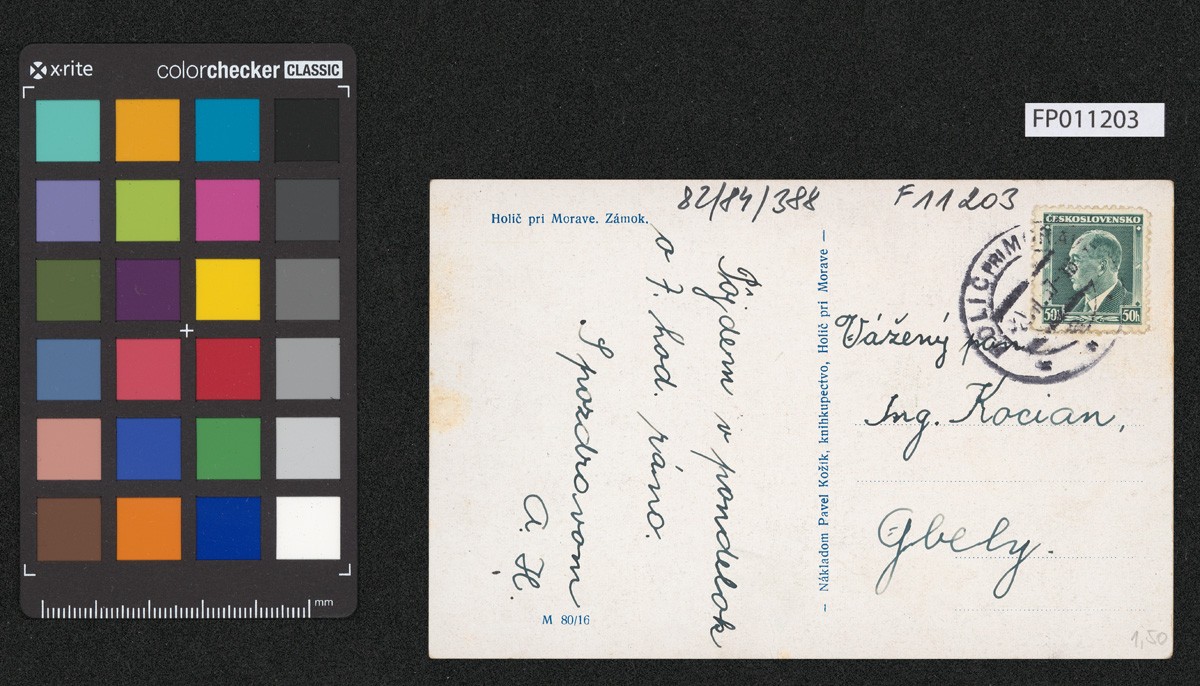 x·rite
colorchecker CLASSIC
mm
FP011203
82/84/388
F11203
Holič pri Morave. Zámok.
ČESKOSLOVENSKO
50h 50h
HOLIČ PRI MORA
Pôjdem v pondelok
o 7. hod. ráno.
S pozdravom
A. H.
M 80/16
– Nákladom Pavel Kožik, knihkupectvo, Holič pri Morave –
Vážený pán
Ing. Kocian,
Gbely.
1,50